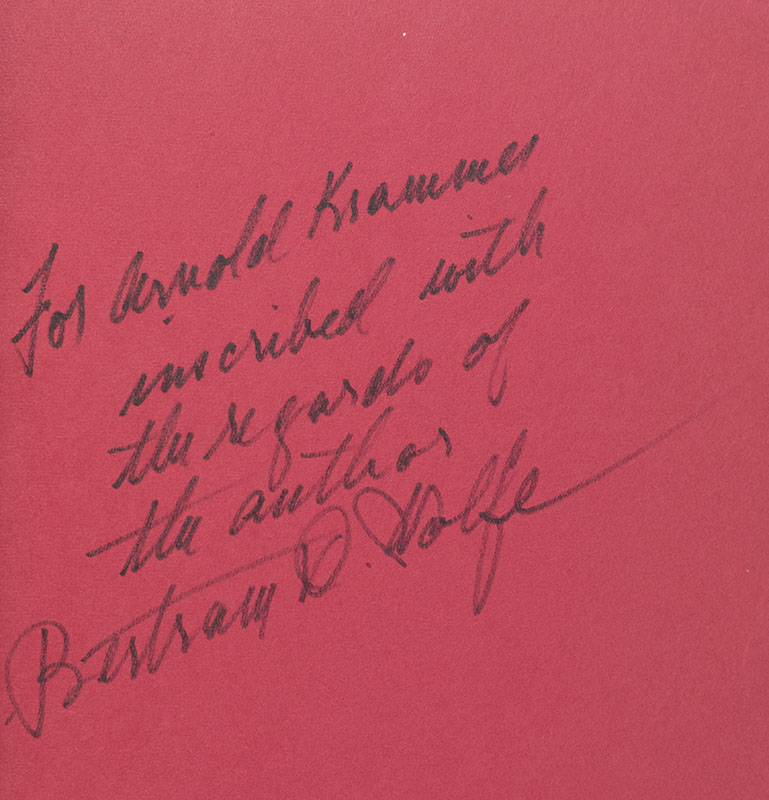 For Arnold Krammer
inscribed with
the regards of
the author
Bertram D. Wolfe